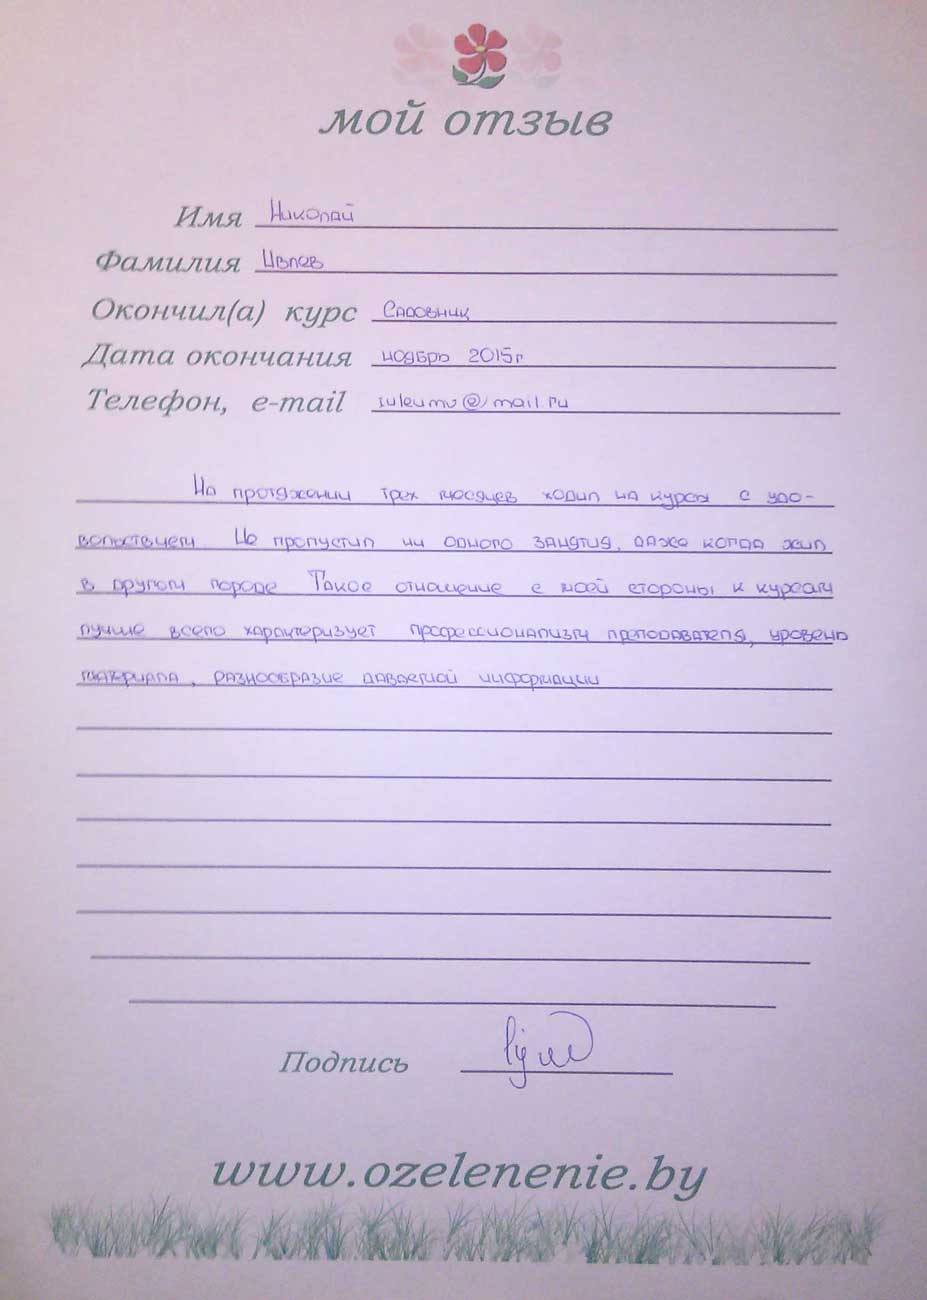 мой отзыв
Имя Николай
Фамилия Ивлев
Окончил(а) курс Садовник
Дата окончания ноябрь 2015г
Телефон, e-mail @mail.ru
На протяжении трех месяцев ходил на курсы с удо-
вольствием. Не пропустил ни одного занятия, даже когда жил
в другом городе Такое отношение с моей стороны к курсам
лучше всего характеризует профессионализм преподавателя, уровень
материала, разнообразие даваемой информации
Подпись
www.ozelenenie.by